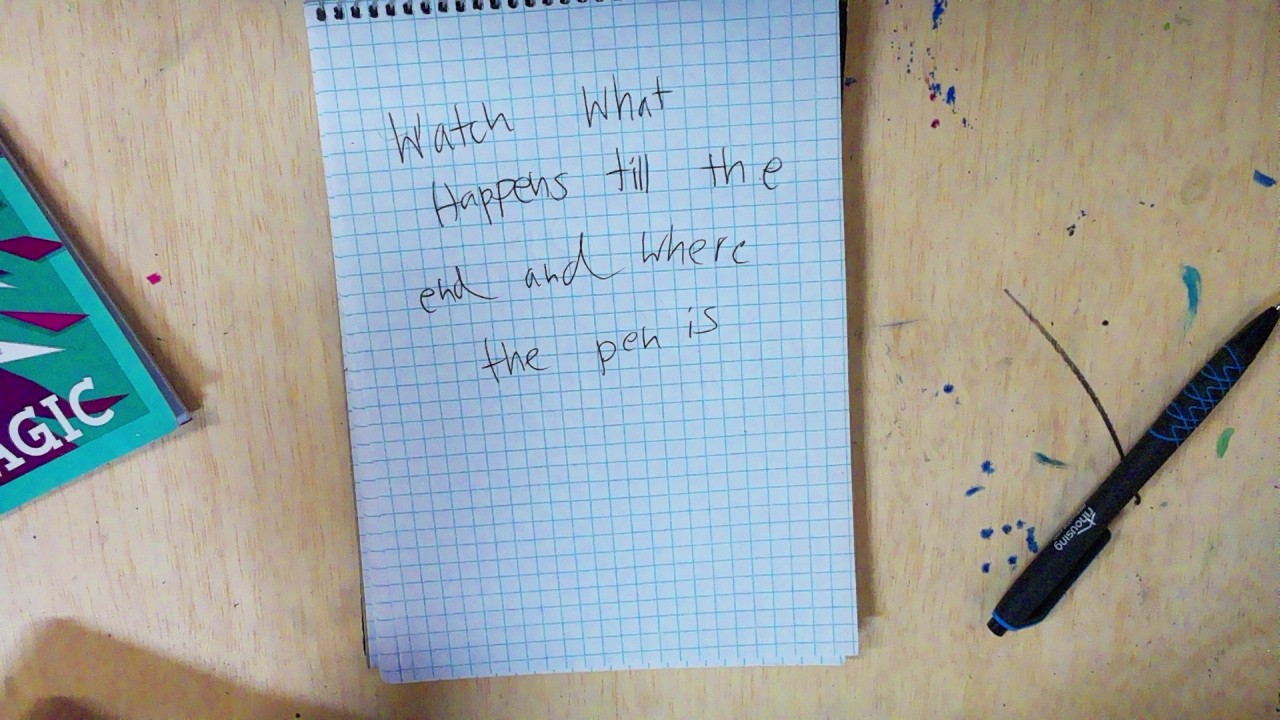 Watch What
Happens till the
end and where
the pen is
AGIC
fihousing